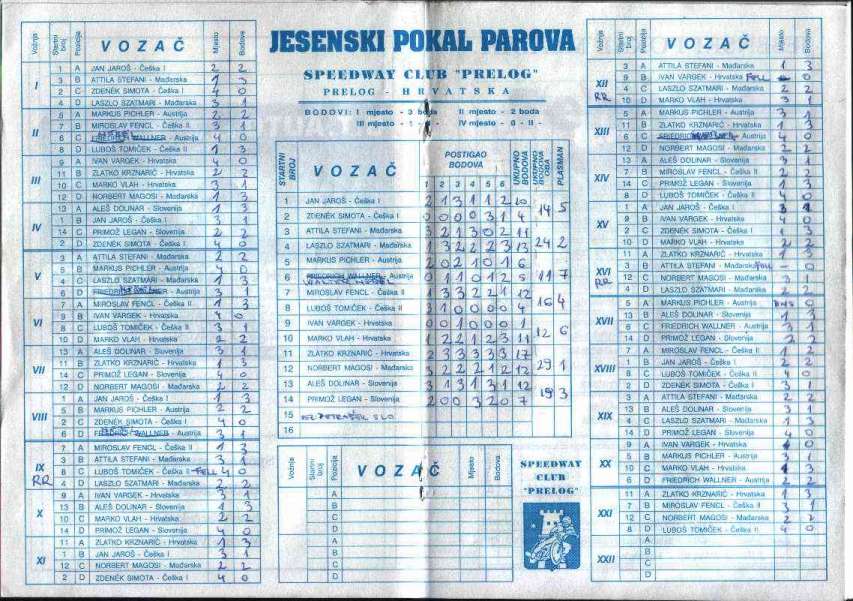 JESENSKI POKAL PAROVA
SPEEDWAY CLUB "PRELOG"
PRELOG - HRVATSKA
BODOVI: I mjesto - 3 boda II mjesto - 2 boda
III mjesto - 1 IV mjesto - 0 - II -
Vožnja Startni broj Pozicija VOZAČ Mjesto Bodova
I
1 A JAN JAROŠ - Češka I 2 2
3 B ATTILA STEFANI - Mađarska 1 3
2 C ZDENĚK SIMOTA - Češka I 4 0
4 D LASZLO SZATMARI - Mađarska 3 1
II
5 A MARKUS PICHLER - Austrija 2 2
7 B MIROSLAV FENCL - Češka II 1 3
6 C FRIEDRICH WALLNER - Austrija 4 0
8 D LUBOŠ TOMIČEK - Češka II 3 1
III
9 A IVAN VARGEK - Hrvatska 4 0
11 B ZLATKO KRZNARIĆ - Hrvatska 2 2
10 C MARKO VLAH - Hrvatska 3 1
12 D NORBERT MAGOSI - Mađarska 1 3
IV
13 A ALEŠ DOLINAR - Slovenija 1 3
1 B JAN JAROŠ - Češka I 3 1
14 C PRIMOŽ LEGAN - Slovenija 2 2
2 D ZDENĚK SIMOTA - Češka I 4 0
V
3 A ATTILA STEFANI - Mađarska 2 2
5 B MARKUS PICHLER - Austrija 4 0
4 C LASZLO SZATMARI - Mađarska 1 3
6 D FRIEDRICH WALLNER - Austrija 3 1
VI
7 A MIROSLAV FENCL - Češka II 1 3
9 B IVAN VARGEK - Hrvatska 4 0
8 C LUBOŠ TOMIČEK - Češka II 3 1
10 D MARKO VLAH - Hrvatska 2 2
VII
13 A ALEŠ DOLINAR - Slovenija 3 1
11 B ZLATKO KRZNARIĆ - Hrvatska 1 3
14 C PRIMOŽ LEGAN - Slovenija 4 0
12 D NORBERT MAGOSI - Mađarska 2 2
VIII
1 A JAN JAROŠ - Češka I 1 3
5 B MARKUS PICHLER - Austrija 2 2
2 C ZDENĚK SIMOTA - Češka I 4 0
6 D FRIEDRICH WALLNER - Austrija 3 1
IX RR
7 A MIROSLAV FENCL - Češka II 1 3
3 B ATTILA STEFANI - Mađarska 3 1
8 C LUBOŠ TOMIČEK - Češka II - FELL 4 0
4 D LASZLO SZATMARI - Mađarska 2 2
X
9 A IVAN VARGEK - Hrvatska 3 1
13 B ALEŠ DOLINAR - Slovenija 1 3
10 C MARKO VLAH - Hrvatska 2 2
14 D PRIMOŽ LEGAN - Slovenija 4 0
XI
11 A ZLATKO KRZNARIĆ - Hrvatska 1 3
1 B JAN JAROŠ - Češka I 3 1
12 C NORBERT MAGOSI - Mađarska 2 2
2 D ZDENĚK SIMOTA - Češka I 4 0
STARTNI BROJ VOZAČ POSTIGAO BODOVA UKUPNO BODOVA UKUPNO BODOVA OBA PLASMAN
1 2 3 4 5 6
1 JAN JAROŠ - Češka I 2 1 3 1 1 2 10
14 5
2 ZDENĚK SIMOTA - Češka I 0 0 0 0 3 1 4
3 ATTILA STEFANI - Mađarska 3 2 1 3 0 2 11
24 2
4 LASZLO SZATMARI - Mađarska 1 3 2 2 2 3 13
5 MARKUS PICHLER - Austrija 2 0 2 1 0 1 6
11 7
6 FRIEDRICH WALLNER - Austrija 0 1 1 0 1 2 5
7 MIROSLAV FENCL - Češka II 1 3 3 2 2 1 12
16 4
8 LUBOŠ TOMIČEK - Češka II 3 1 0 0 0 0 4
9 IVAN VARGEK - Hrvatska 0 0 1 0 0 0 1
12 6
10 MARKO VLAH - Hrvatska 1 2 2 1 2 3 11
11 ZLATKO KRZNARIĆ - Hrvatska 2 3 3 3 3 3 17
29 1
12 NORBERT MAGOSI - Mađarska 3 2 2 2 1 2 12
13 ALEŠ DOLINAR - Slovenija 3 1 3 1 3 1 12
19 3
14 PRIMOŽ LEGAN - Slovenija 2 0 0 3 2 0 7
15
16
Vožnja Startni broj Pozicija VOZAČ Mjesto Bodova
A
B
C
D
A
B
C
D
SPEEDWAY
CLUB
"PRELOG"
Vožnja Startni broj Pozicija VOZAČ Mjesto Bodova
XII RR
3 A ATTILA STEFANI - Mađarska 1 3
9 B IVAN VARGEK - Hrvatska FELL - 0
4 C LASZLO SZATMARI - Mađarska 2 2
10 D MARKO VLAH - Hrvatska 3 1
XIII
5 A MARKUS PICHLER - Austrija 3 1
11 B ZLATKO KRZNARIĆ - Hrvatska 1 3
6 C FRIEDRICH WALLNER - Austrija 4 0
12 D NORBERT MAGOSI - Mađarska 2 2
XIV
13 A ALEŠ DOLINAR - Slovenija 3 1
7 B MIROSLAV FENCL - Češka II 2 2
14 C PRIMOŽ LEGAN - Slovenija 1 3
8 D LUBOŠ TOMIČEK - Češka II 4 0
XV
1 A JAN JAROŠ - Češka I 3 1
9 B IVAN VARGEK - Hrvatska 4 0
2 C ZDENĚK SIMOTA - Češka I 1 3
10 D MARKO VLAH - Hrvatska 2 2
XVI RR
11 A ZLATKO KRZNARIĆ - Hrvatska 1 3
3 B ATTILA STEFANI - Mađarska FELL - 0
12 C NORBERT MAGOSI - Mađarska 3 1
4 D LASZLO SZATMARI - Mađarska 2 2
XVII
5 A MARKUS PICHLER - Austrija 0
13 B ALEŠ DOLINAR - Slovenija 1 3
6 C FRIEDRICH WALLNER - Austrija 3 1
14 D PRIMOŽ LEGAN - Slovenija 2 2
XVIII
7 A MIROSLAV FENCL - Češka II 1 2
1 B JAN JAROŠ - Češka I 2 2
8 C LUBOŠ TOMIČEK - Češka II 4 0
2 D ZDENĚK SIMOTA - Češka I 3 1
XIX
3 A ATTILA STEFANI - Mađarska 2 2
13 B ALEŠ DOLINAR - Slovenija 3 1
4 C LASZLO SZATMARI - Mađarska 1 3
14 D PRIMOŽ LEGAN - Slovenija 4 0
XX
9 A IVAN VARGEK - Hrvatska 4 0
5 B MARKUS PICHLER - Austrija 3 1
10 C MARKO VLAH - Hrvatska 1 3
6 D FRIEDRICH WALLNER - Austrija 2 2
XXI
11 A ZLATKO KRZNARIĆ - Hrvatska 1 3
7 B MIROSLAV FENCL - Češka II 3 1
12 C NORBERT MAGOSI - Mađarska 2 2
8 D LUBOŠ TOMIČEK - Češka II 4 0
XXII
A
B
C
D